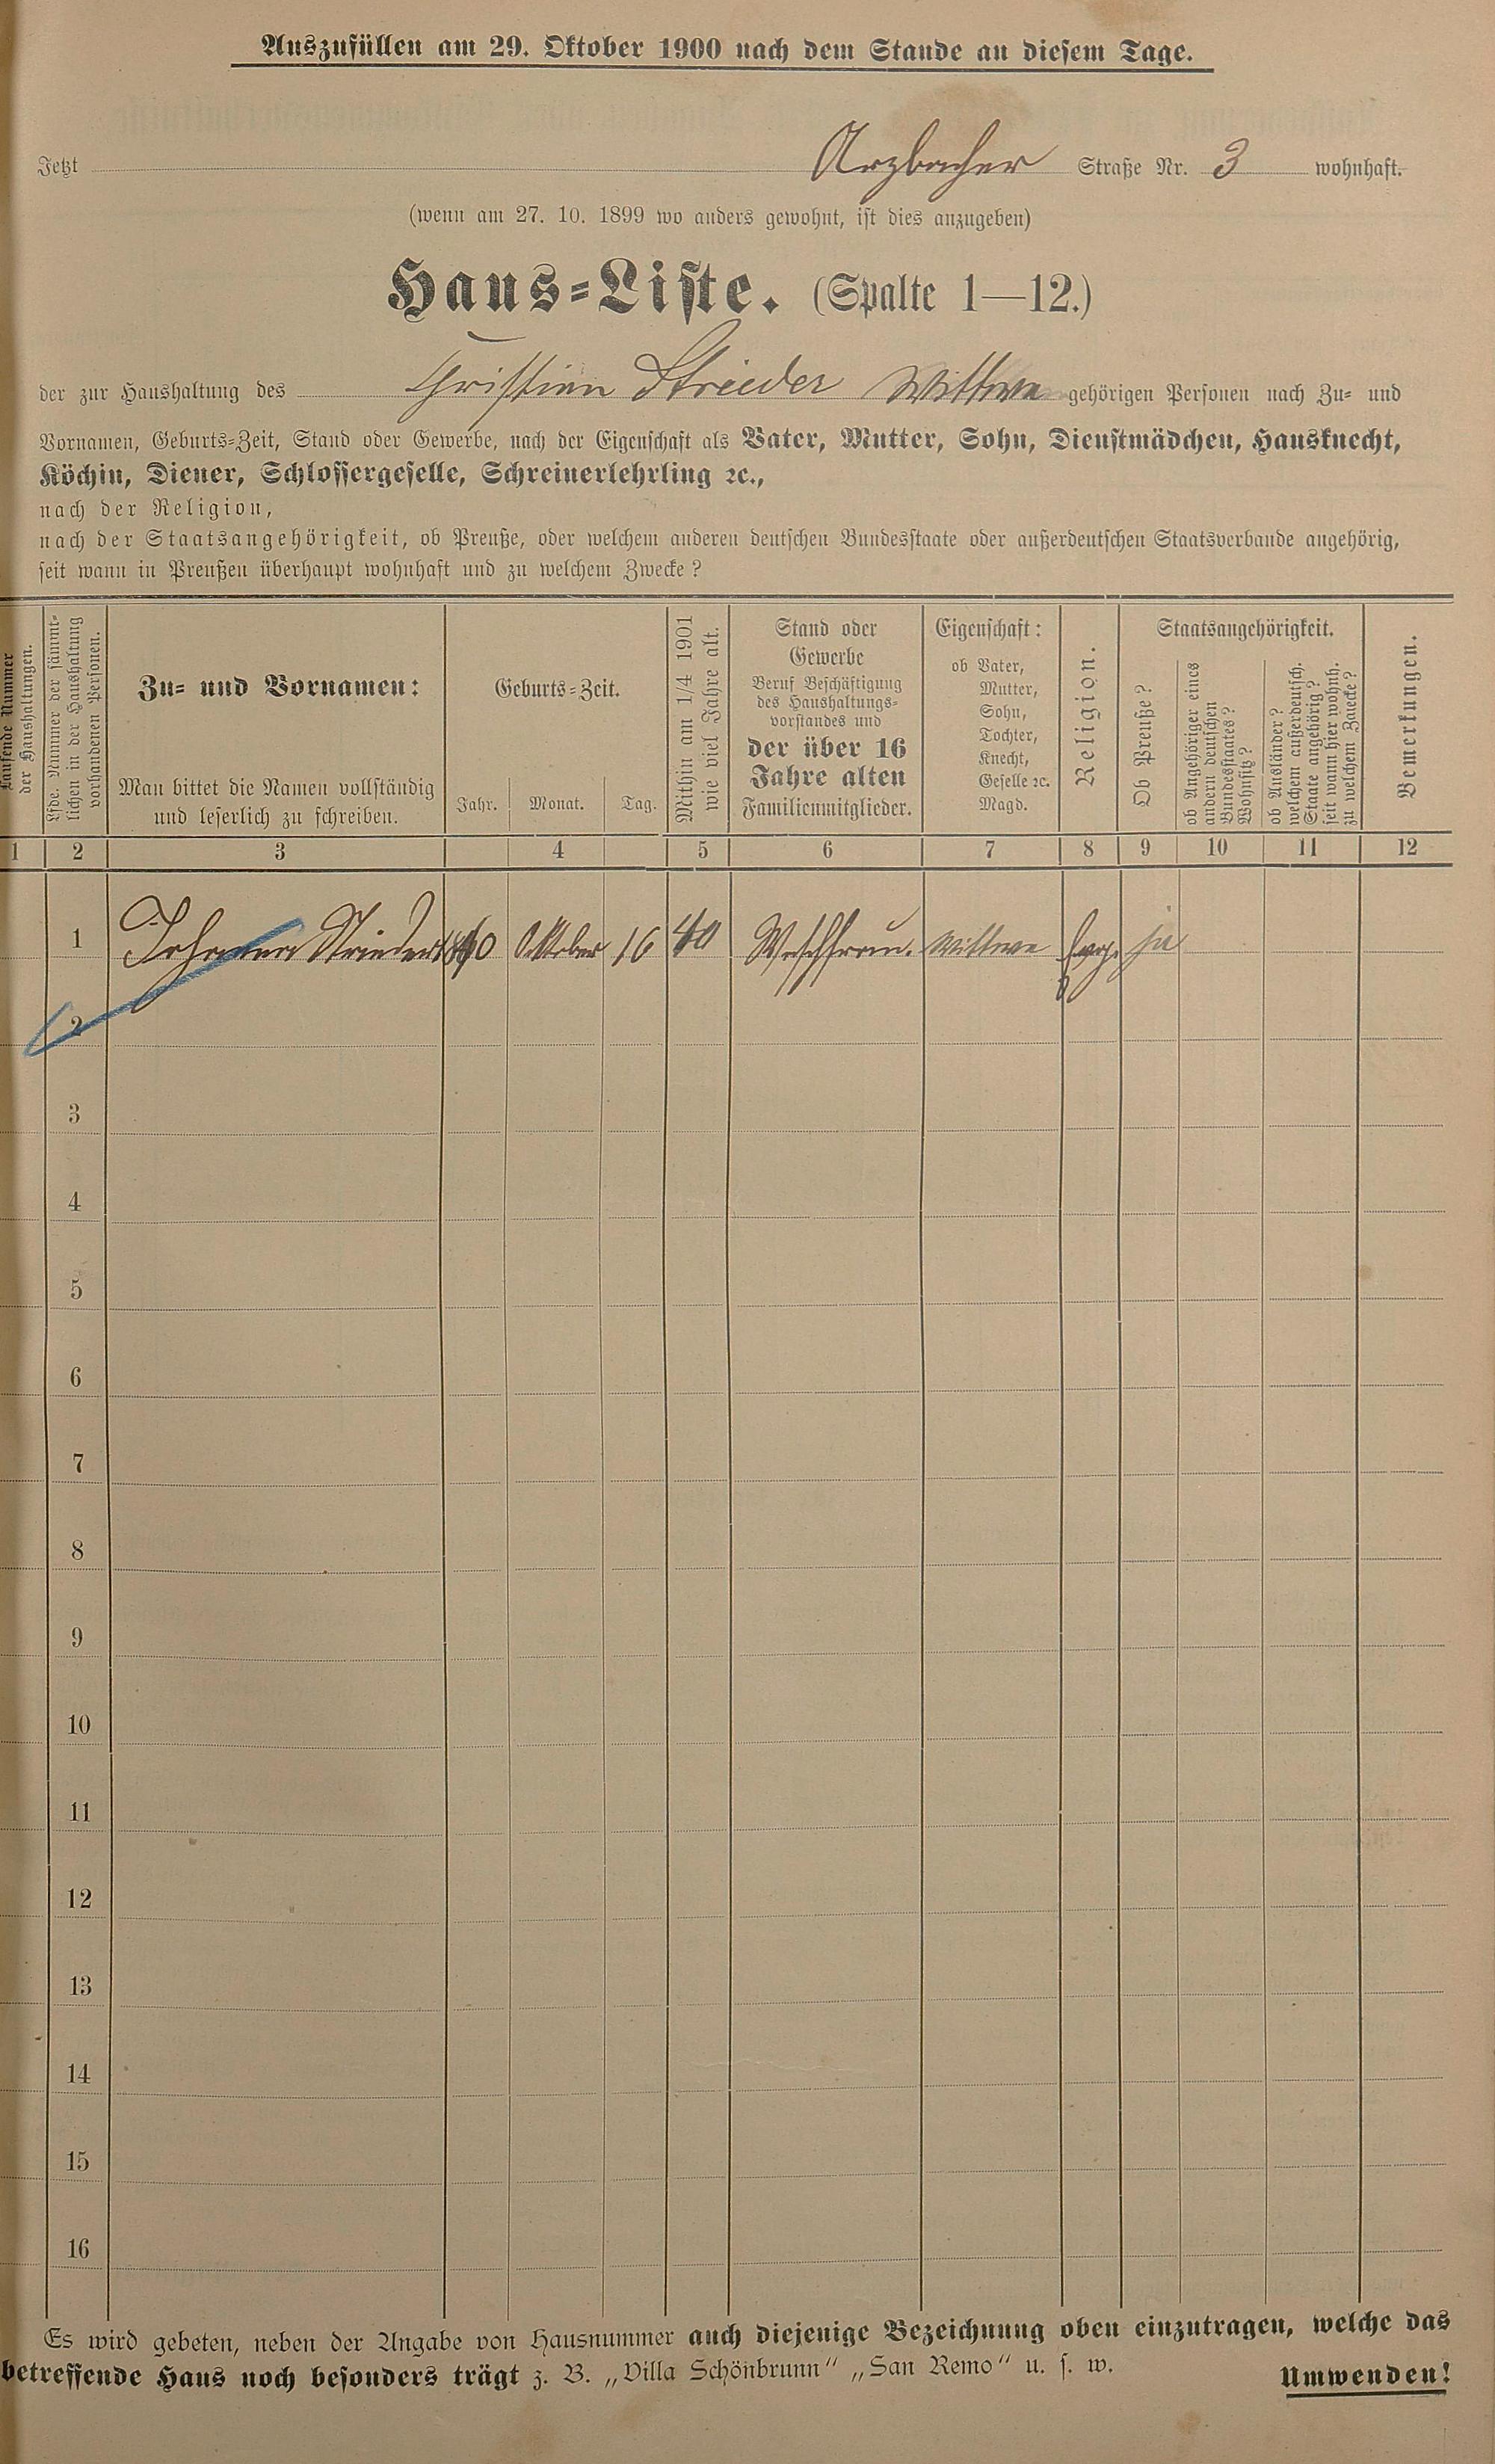 Auszufüllen am 29. Oktober 1900 nach dem Stande an diesem Tage.
Jetzt Arzbacher Straße Nr. 3 wohnhaft.
(wenn am 27. 10. 1899 wo anders gewohnt, ist dies anzugeben)
Haus-Liste. (Spalte 1—12.)
der zur Haushaltung des Christian Strieder Wittwe gehörigen Personen nach Zu- und
Vornamen, Geburts-Zeit, Stand oder Gewerbe, nach der Eigenschaft als Vater, Mutter, Sohn, Dienstmädchen, Hausknecht,
Köchin, Diener, Schlossergeselle, Schreinerlehrling ꝛc.,
nach der Religion,
nach der Staatsangehörigkeit, ob Preuße, oder welchem anderen deutschen Bundesstaate oder außerdeutschen Staatsverbande angehörig,
seit wann in Preußen überhaupt wohnhaft und zu welchem Zwecke?
Laufende Nummer
der Haushaltungen.
Lfde. Nummer der sämmt-
lichen in der Haushaltung
vorhandenen Personen.
Zu- und Vornamen:
Man bittet die Namen vollständig
und leserlich zu schreiben.
Geburts-Zeit.
Jahr. Monat. Tag.
Mithin am 1/4 1901
wie viel Jahre alt.
Stand oder
Gewerbe
Beruf Beschäftigung
des Haushaltungs-
vorstandes und
der über 16
Jahre alten
Familienmitglieder.
Eigenschaft:
ob Vater,
Mutter,
Sohn,
Tochter,
Knecht,
Geselle ꝛc.
Magd.
Religion.
Staatsangehörigkeit.
Ob Preuße?
ob Angehöriger eines
andern deutschen
Bundesstaates?
Wohnsitz?
ob Ausländer?
welchem außerdeutsch.
Staate angehörig?
seit wann hier wohnh.
zu welchem Zwecke?
Bemerkungen.
1 2 3 4 5 6 7 8 9 10 11 12
1 Strieder 1860 Oktober 16 40 Waschfrau. Wittwe Evg. ja
2
3
4
5
6
7
8
9
10
11
12
13
14
15
16
Es wird gebeten, neben der Angabe von Hausnummer auch diejenige Bezeichnung oben einzutragen, welche das
betreffende Haus noch besonders trägt z. B. „Villa Schönbrunn“ „San Remo“ u. s. w.
Umwenden!